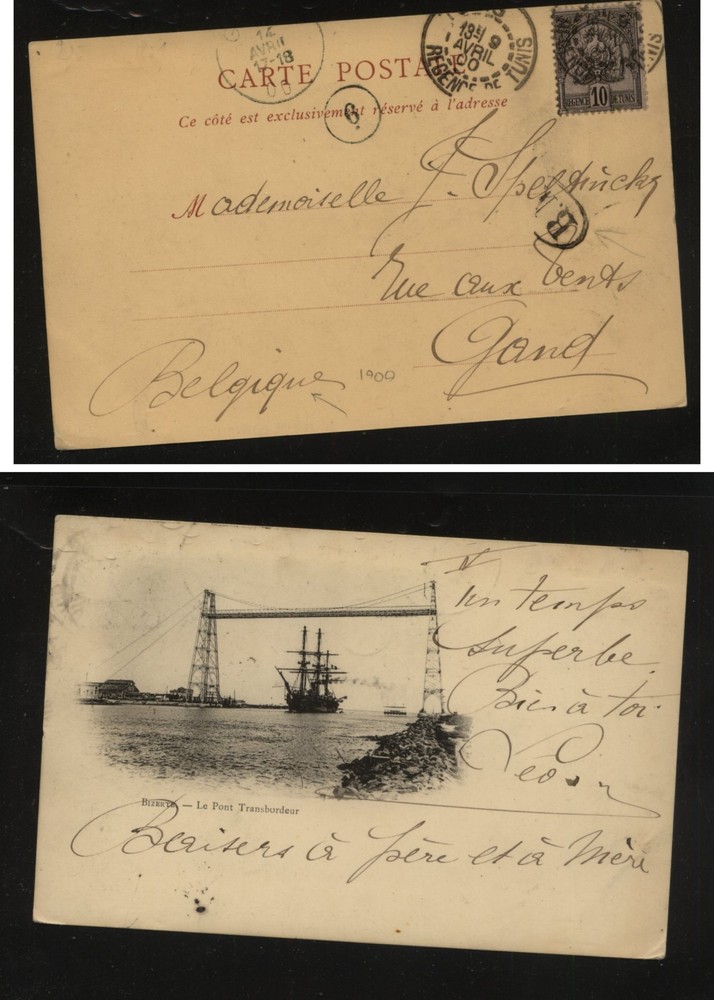 14
AVRIL
17-18
00
13E/ 9
AVRIL
00
REGENCE DE TUNIS
TUNIS
REGENCE 10 DE TUNIS
CARTE POSTALE
6
Ce côté est exclusivement réservé à l'adresse
Mademoiselle J. Spelbrinckx
B.
Rue aux Vents
Gand
Belgique
1900
IV
Un temps
superbe.
Bien à toi
Léon
BIZERTE — Le Pont Transbordeur
Baisers à père et à Mère